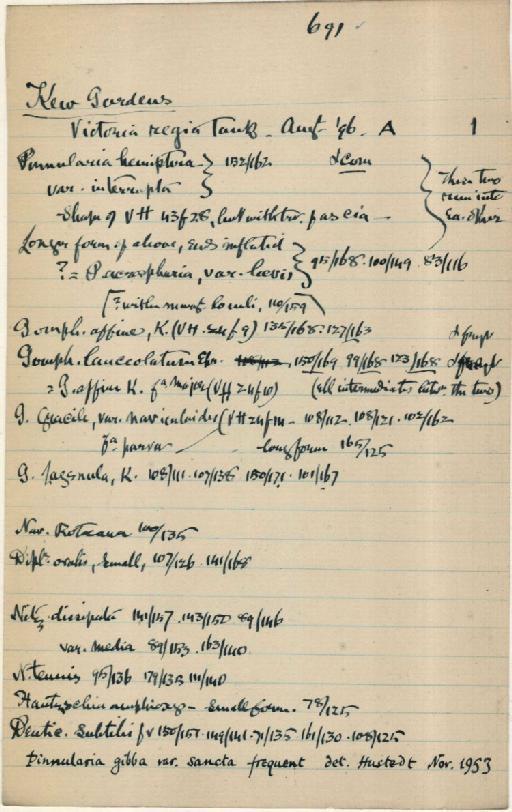 691
Kew Gardens
Victoria regia Tank - Augt '96. A 1
Pinnularia hemiptera 152/162 d com
var. interrupta
Shape of VH 43 f 28, but with trv. fascia —
These two
run into
ea. other
Longer form of above, ends inflated
? = P. var. laevis 100/149 . 83/116
110/159
Gomph. affine, K. (VH 24 f 9) 127/163
Gomph. lanceolatum Ehr. 150/169 99/168 123/168
= G. affin K. fa major (VH 24 f 10) (all intermediates betw. the two)
G. Gracile, var. naviculoides (VH 24 f 108/112 . 108/121 . 102/162
fa parva — long form 165/125
G. K. 108/111 . 107/138 150/171 . 101/167
Nav. Rotaeana 100/135
Dipl. ovalis, small, 107/126 . 141/168
Nitz. dissipata 141/157 . 143/150 89/146
var. media 89/153 . 163/140
N. tenuis 95/136 179/135 111/140
Hantzschia amphioxys — small form. 78/125
Dentic. subtilis fv 150/151 149/141 71/135 161/130 . 108/125
Pinnularia gibba var. sancta frequent Det. Hustedt Nov. 1953